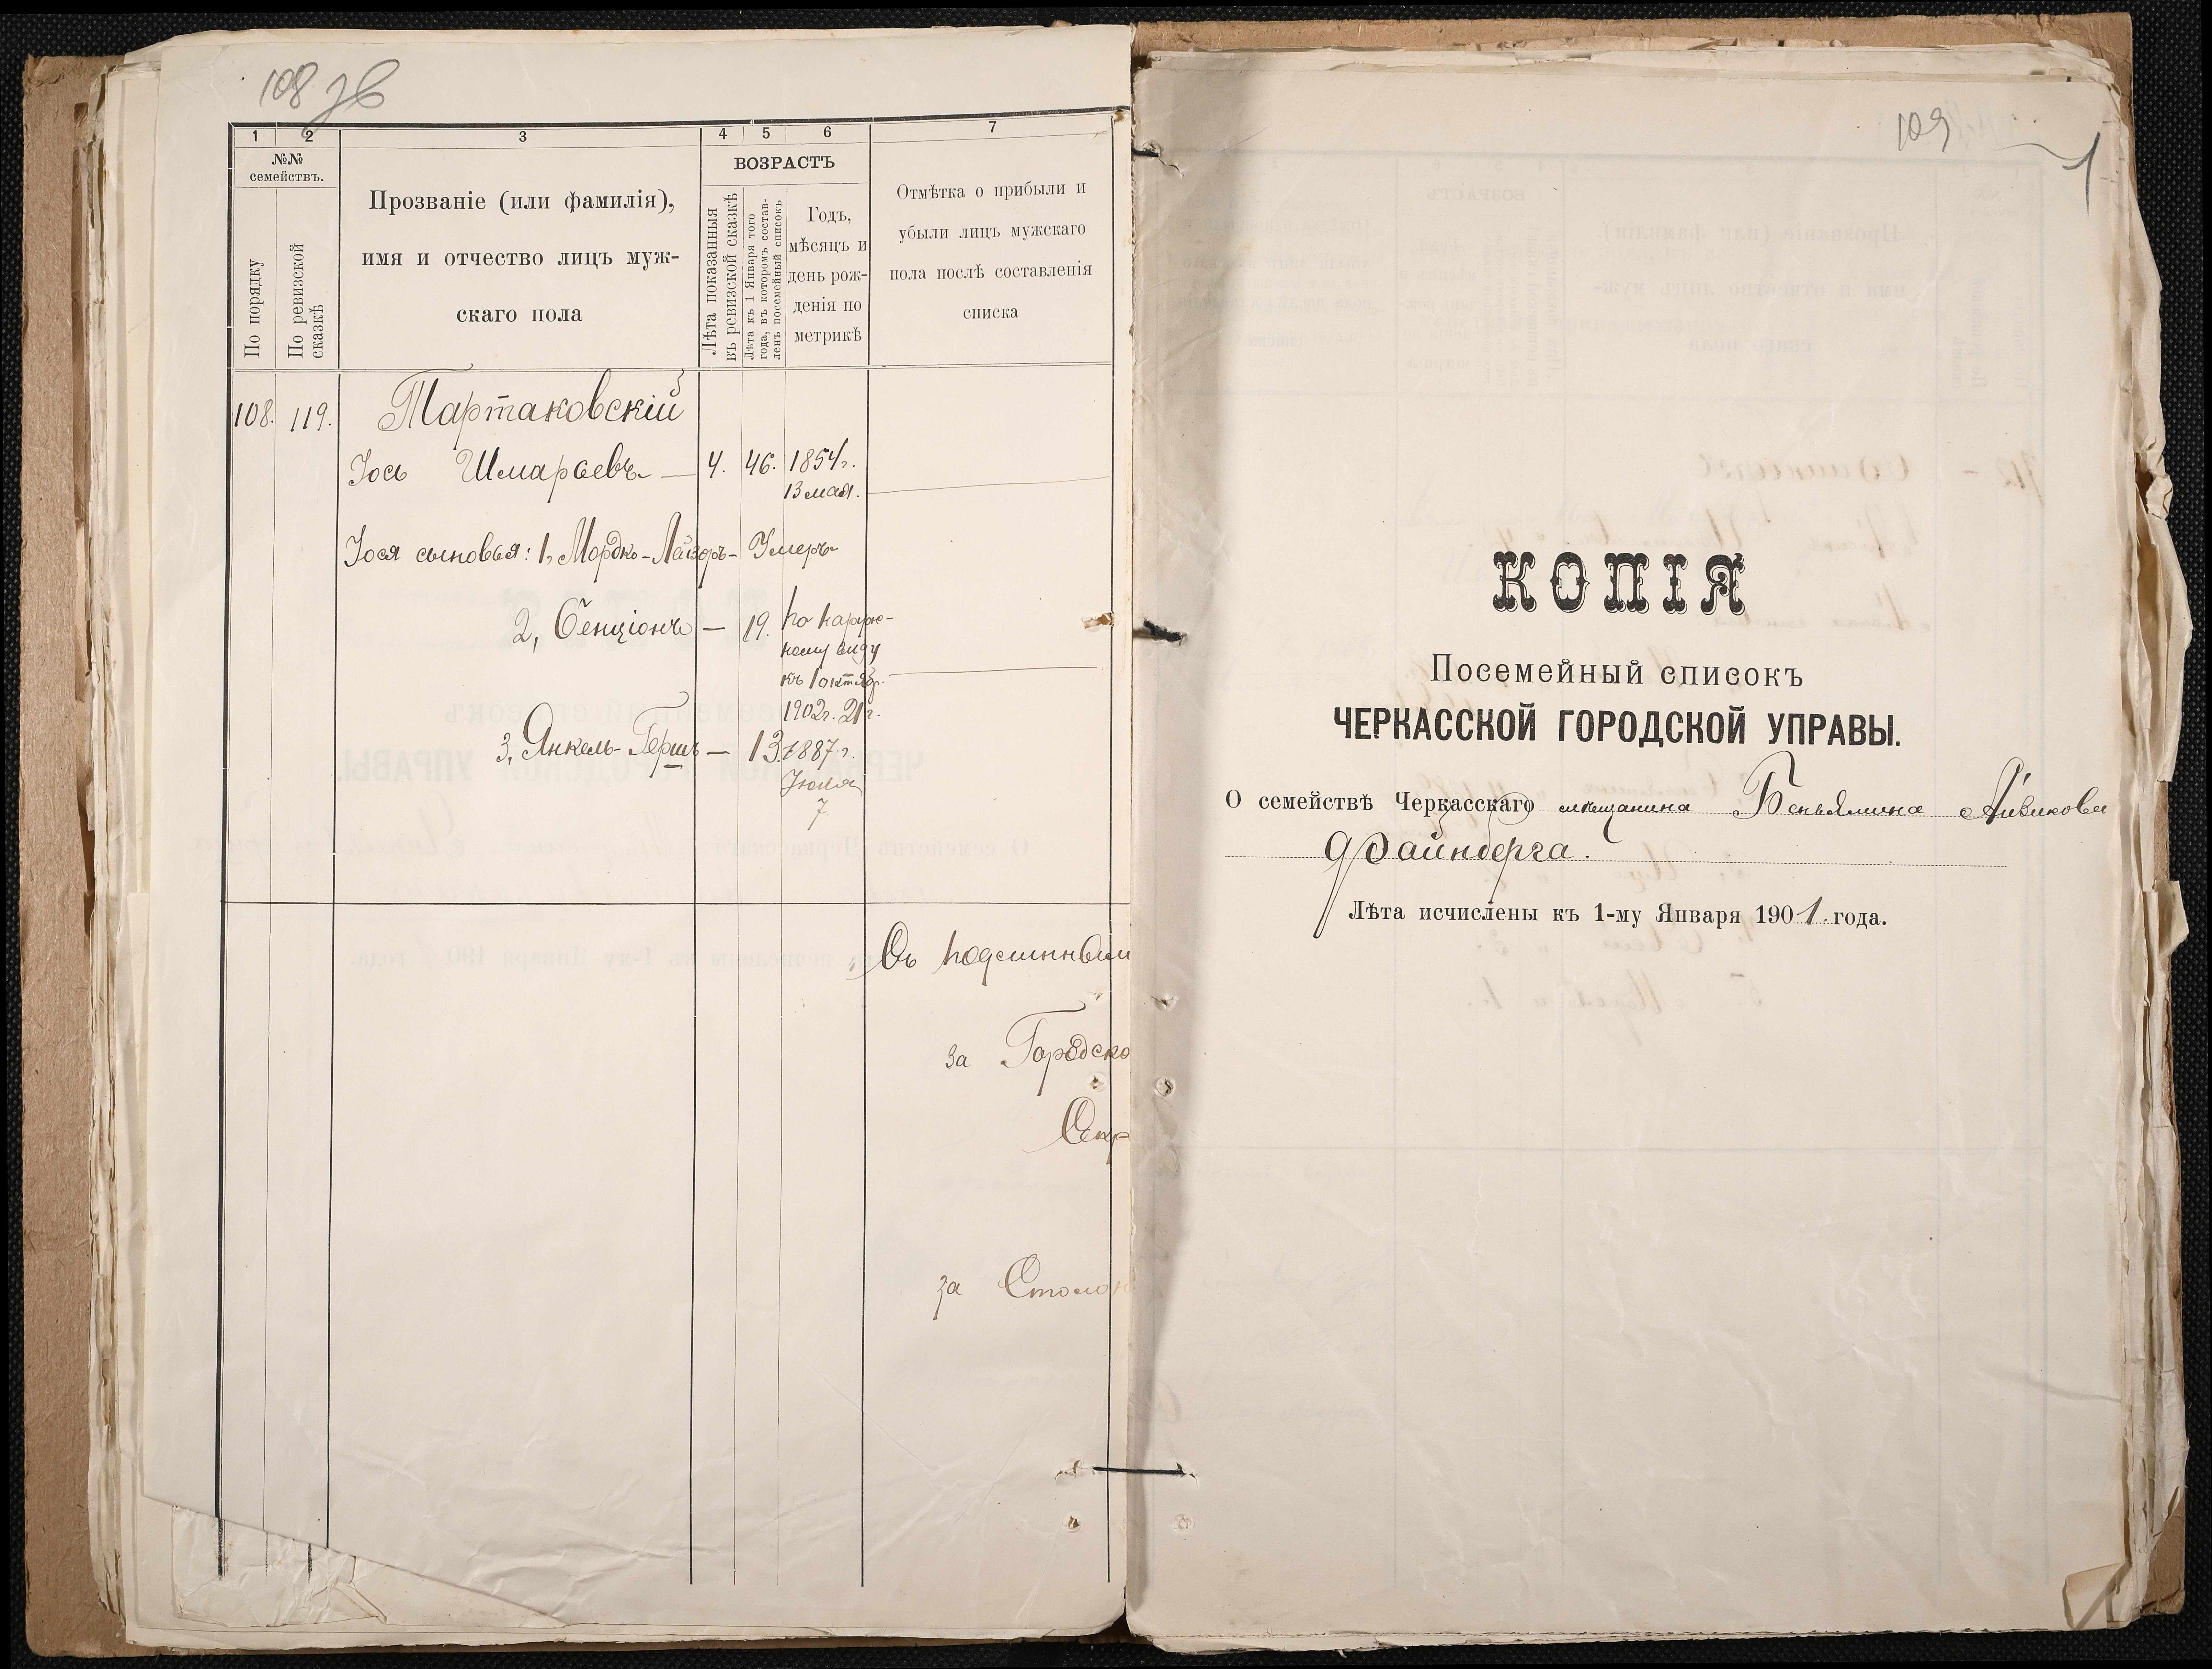 108 зв
1 2 3 4 5 6 7
№№ семействъ.
По порядку
По ревизской сказкѣ
Прозваніе (или фамилія),
имя и отчество лицъ муж-
скаго пола
ВОЗРАСТЪ
Лѣта показанныя
въ ревизской сказкѣ
Лѣта къ 1 Января того
года, въ которомъ состав-
ленъ посемейный списокъ
Годъ,
мѣсяцъ и
день рож-
денія по
метрикѣ
Отмѣтка о прибыли и
убыли лицъ мужскаго
пола послѣ составленія
списка
108. 119. Тартаковскій
Іось Шмараевъ — 4. 46. 1854 г.
13 мая.
Іося сыновья: 1, Мордко-Лайзоръ - Умеръ
2, Бенціонъ — 19. по наруж-
ному виду
къ 1 октябр.
1902 г. 21 г.
3, Янкель-Гершъ — 13. 1887 г.
Іюля
7
Съ подлиннымъ
за Городско
Секр
за Столон
109
1
КОПІЯ
Посемейный списокъ
ЧЕРКАССКОЙ ГОРОДСКОЙ УПРАВЫ.
О семействѣ Черкасскаго мѣщанина Беньямина Айзикова
Файнберга.
Лѣта исчислены къ 1-му Января 1901. года.